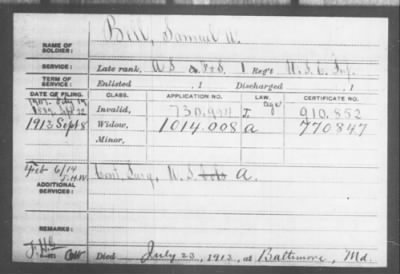 NAME OF SOLDIER: Bell, Samuel A.
SERVICE: Late rank, A S 1 Reg't U.S.C. Inf.
TERM OF SERVICE: Enlisted , 1 Discharged , 1
DATE OF FILING. CLASS. APPLICATION NO. LAW. CERTIFICATE NO.
Invalid, age I 910.852
1913 Sept 8 Widow, 1014.008 a 770847
Minor,
Feb 6/14
ADDITIONAL SERVICES: Surg, U.S. A.
REMARKS:
Died July 23, 1913, at Baltimore, Md.